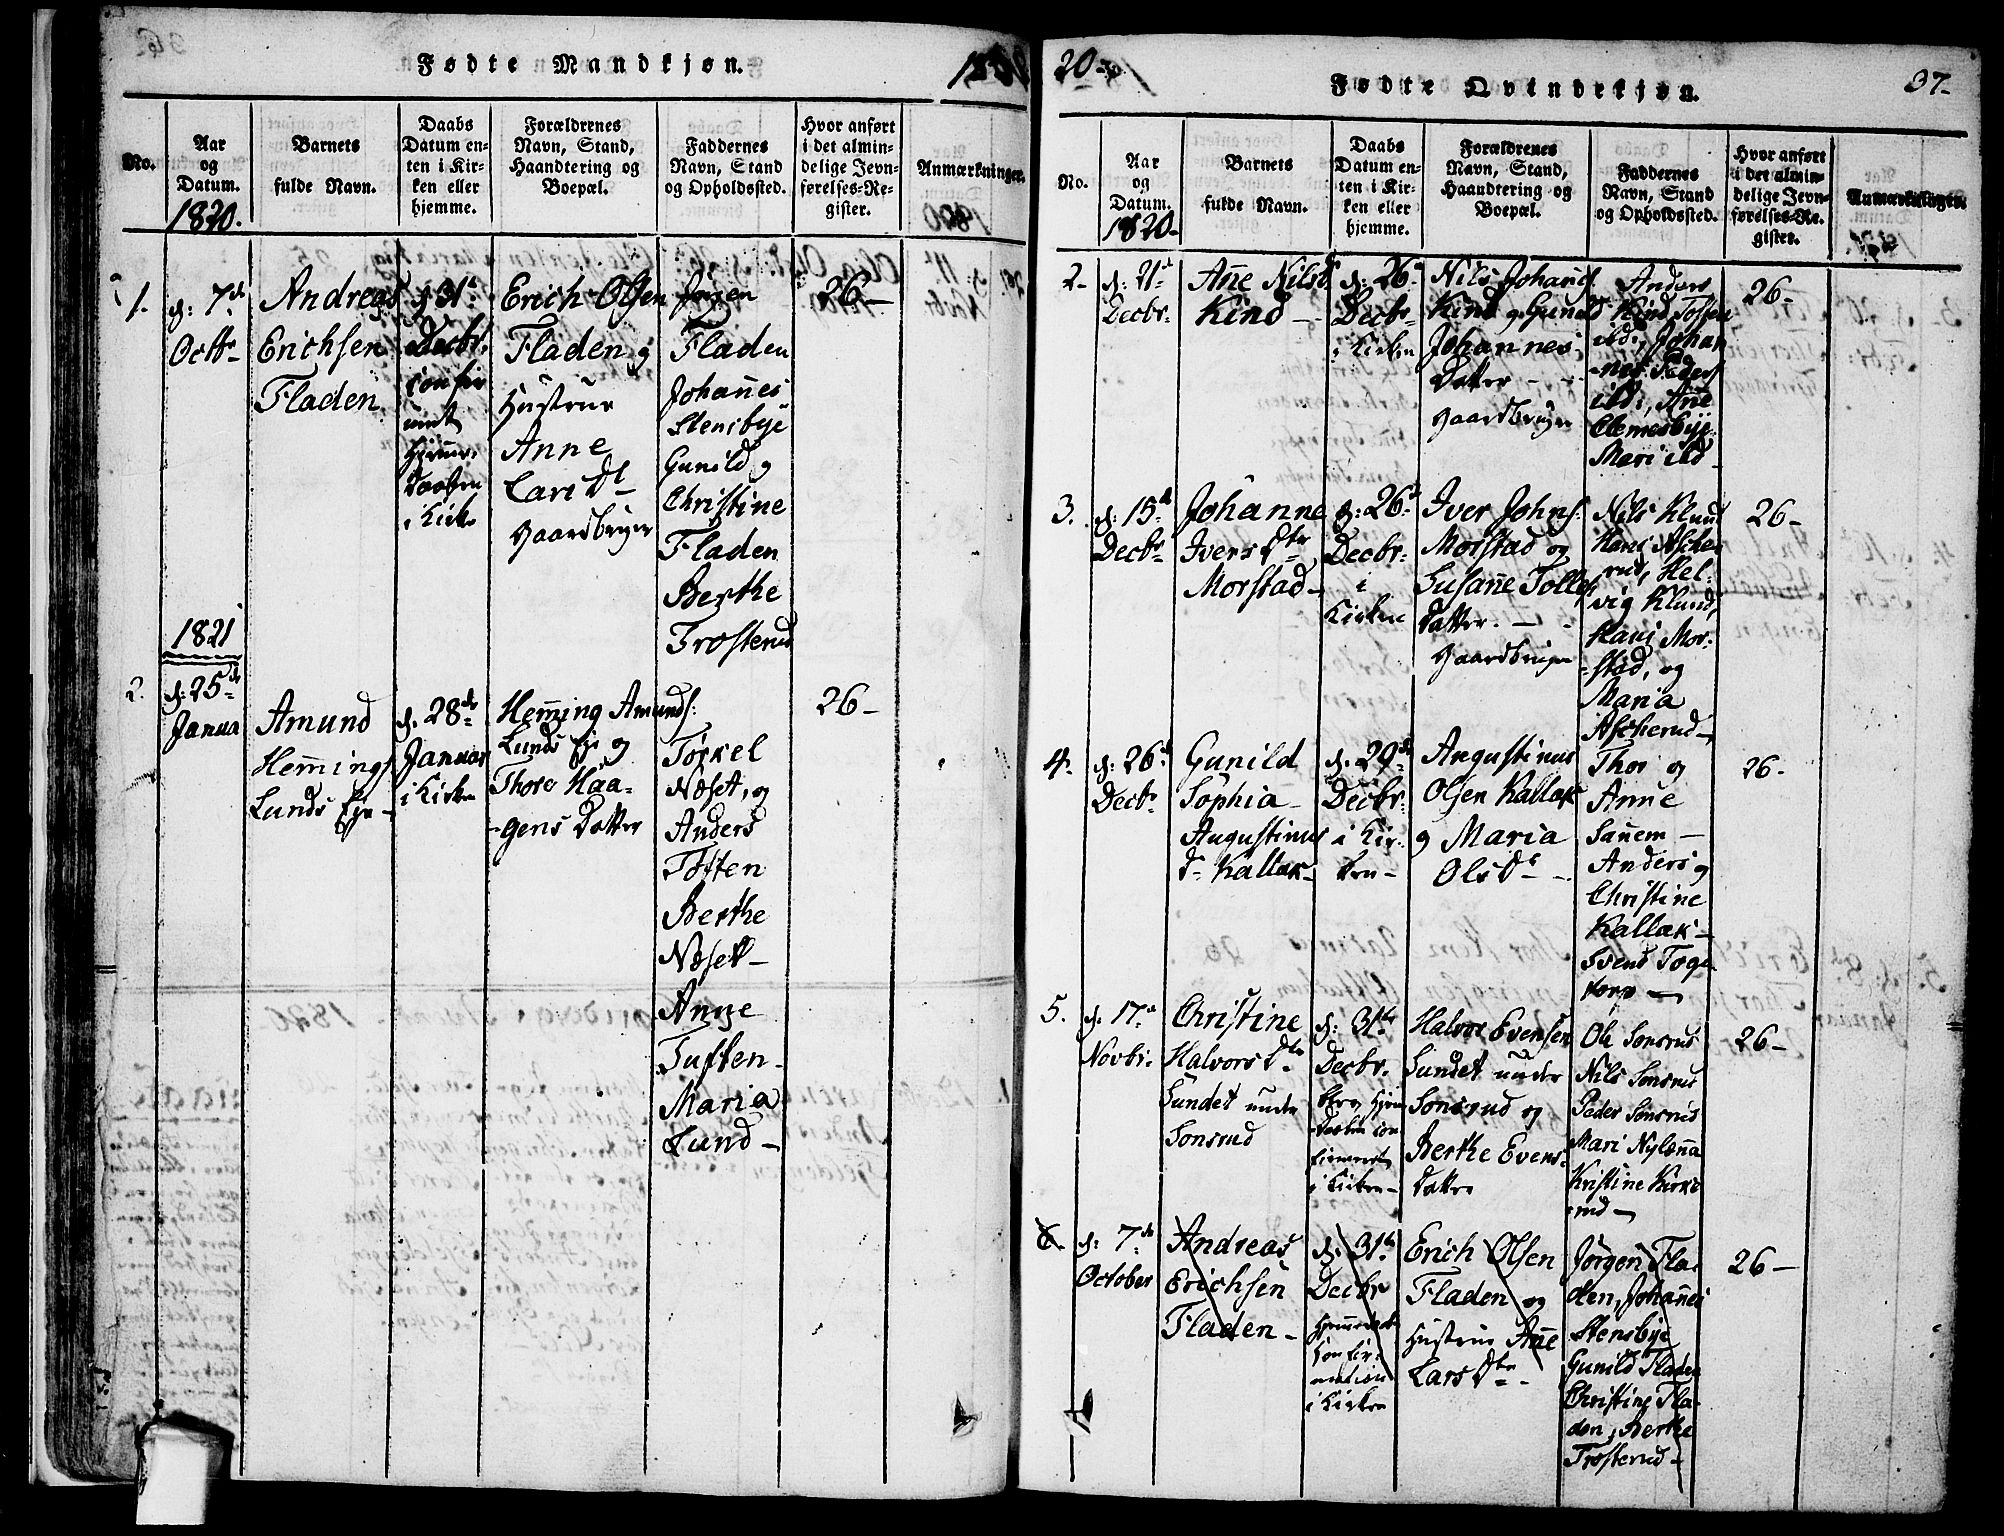 Fødte Mandkjøn.
1820
No.
Aar
og
Datum.
1820.
Barnets
fulde Navn.
Daabs
Datum en-
ten i Kir-
ken eller
hjemme.
Forældrenes
Navn, Stand,
Haandtering og
Boepæl.
Faddernes
Navn, Stand
og Opholdssted.
Hvor anført
i det almin-
delige Jevn-
førelses-Re-
gister.
Anmærkninger.
1.
d: 7de
Octbr
Andreas
Erichsen
Fladen
d 31te
Decbr.
confir
meret
Hjemme-
Daaben
i Kirke
Erich Olsen
Fladen og
Hustrue
Anne
Lars Dt
Gaardbruger
Jørgen
Fladen
Johannes
Stensbye
Gunild og
Christine
Fladen
Berthe
Trosterud
26-
1821
2.
d: 25de
Janua
Amund
Hemings
Lunds Eje-
d: 28de
Januar
i Kirken
Heming Amunds:
Lunds Eje og
Thore Haa-
-gens Datter
Torkel
Næset, og
Anders
Toften
Berthe
Næset-
Anne
Tuften-
Maria
Lund-
26-
20-
Fødte Qvindekjøn.
37-
No.
Aar
og
Datum.
1820-
Barnets
fulde Navn.
Daabs
Datum en-
ten i Kir-
ken eller
hjemme.
Forældrenes
Navn, Stand,
Haandtering og
Boepæl.
Faddernes
Navn, Stand
og Opholdssted.
Hvor anført
i det almin-
delige Jevn-
førelses-Re-
gister.
Anmærkninger.
2-
d: 21de
Decbr.
Anne Nilsd
Kind -
d: 26
Decbr-
i Kirken
Nils Johans
Kind og Gunild
Johannes
Datter - -
Gaardbruger
Anders
Kind
ibd, Johan
-nes Peders
ibd:, Anne
Clemesbye
Mari ibd-
26-
3.
d: 15de
Decbr
Johanne
Ivers Dtr
Morstad-
d: 26de
Decbr:
i
Kirken
Iver Johns:
Morstad og
Susanne Tolles
Datter. - -
Gaardbruger
Nils Klund
Hans Asche
rud, Hel-
vig Klund,
Hans Mor-
stad, og
Maria
Ascherud-
26-
4.
d: 26de
Decbr
Gunild
Sophia
Augustinus
D- Kallak-
d: 29de
Decbr:
i Kir-
ken-
Augustinus
Olsen Kallak
og Maria
Ols Dt -
Thor og
Anne
Sannem -
Anders og
Christine
Kallak-
Svend Toge
torp -
26-
5.
d. 17de
Novbr.
Christine
Halvors Dtr
Sundet under
Sonsrud
d: 31te
Decbr.
blev Hjem
-Daaben con
firmeret
i Kirken-
Halvor Evensen
Sundet under
Sonsrud og
Berthe Evens-
Datter
Ole Sonsrud
Nils Sonsrud
Peder Sonsrud
Mari Nylænna
Kristine Kirke
rud-
26-
6.
d: 7de
October
Andreas
Erichsen
Fladen-
d: 31te
Decbr
Hjemmedaabs
Confir-
mation
i Kirken
Erich Olsen
Fladen og
Hustrue Anne
Lars Dtr -
Jørgen Fla-
den, Johannes
Stensbye
Gunild Fladen
Christine Fla-
den, Berthe
Trosterud-
26-